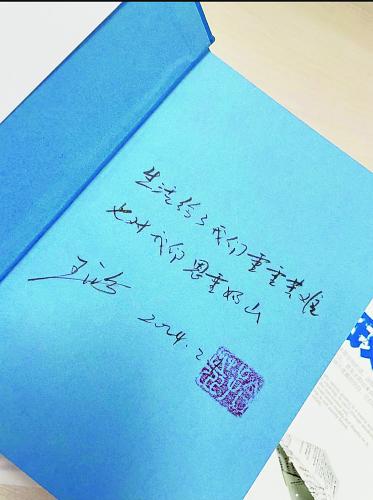 生活给了我们重重苦难
也对我们恩重如山
2024.2